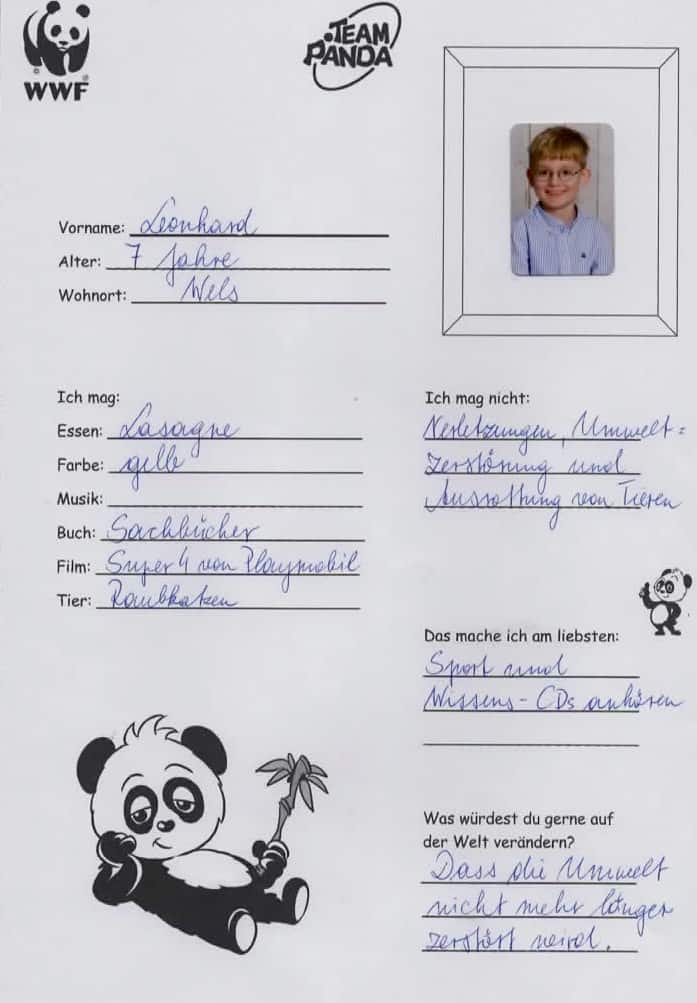 WWF
TEAM
PANDA
Vorname: Leonhard
Alter: 7 Jahre
Wohnort: Wels
Ich mag:
Essen: Lasagne
Farbe: gelb
Musik:
Buch: Sachbücher
Film: Super 4 von Playmobil
Tier: Raubkatzen
Ich mag nicht:
Verletzungen, Umwelt=
zerstörung und
Ausrottung von Tieren
Das mache ich am liebsten:
Sport und
Wissens-CDs anhören
Was würdest du gerne auf
der Welt verändern?
Dass die Umwelt
nicht mehr länger
zerstört wird.